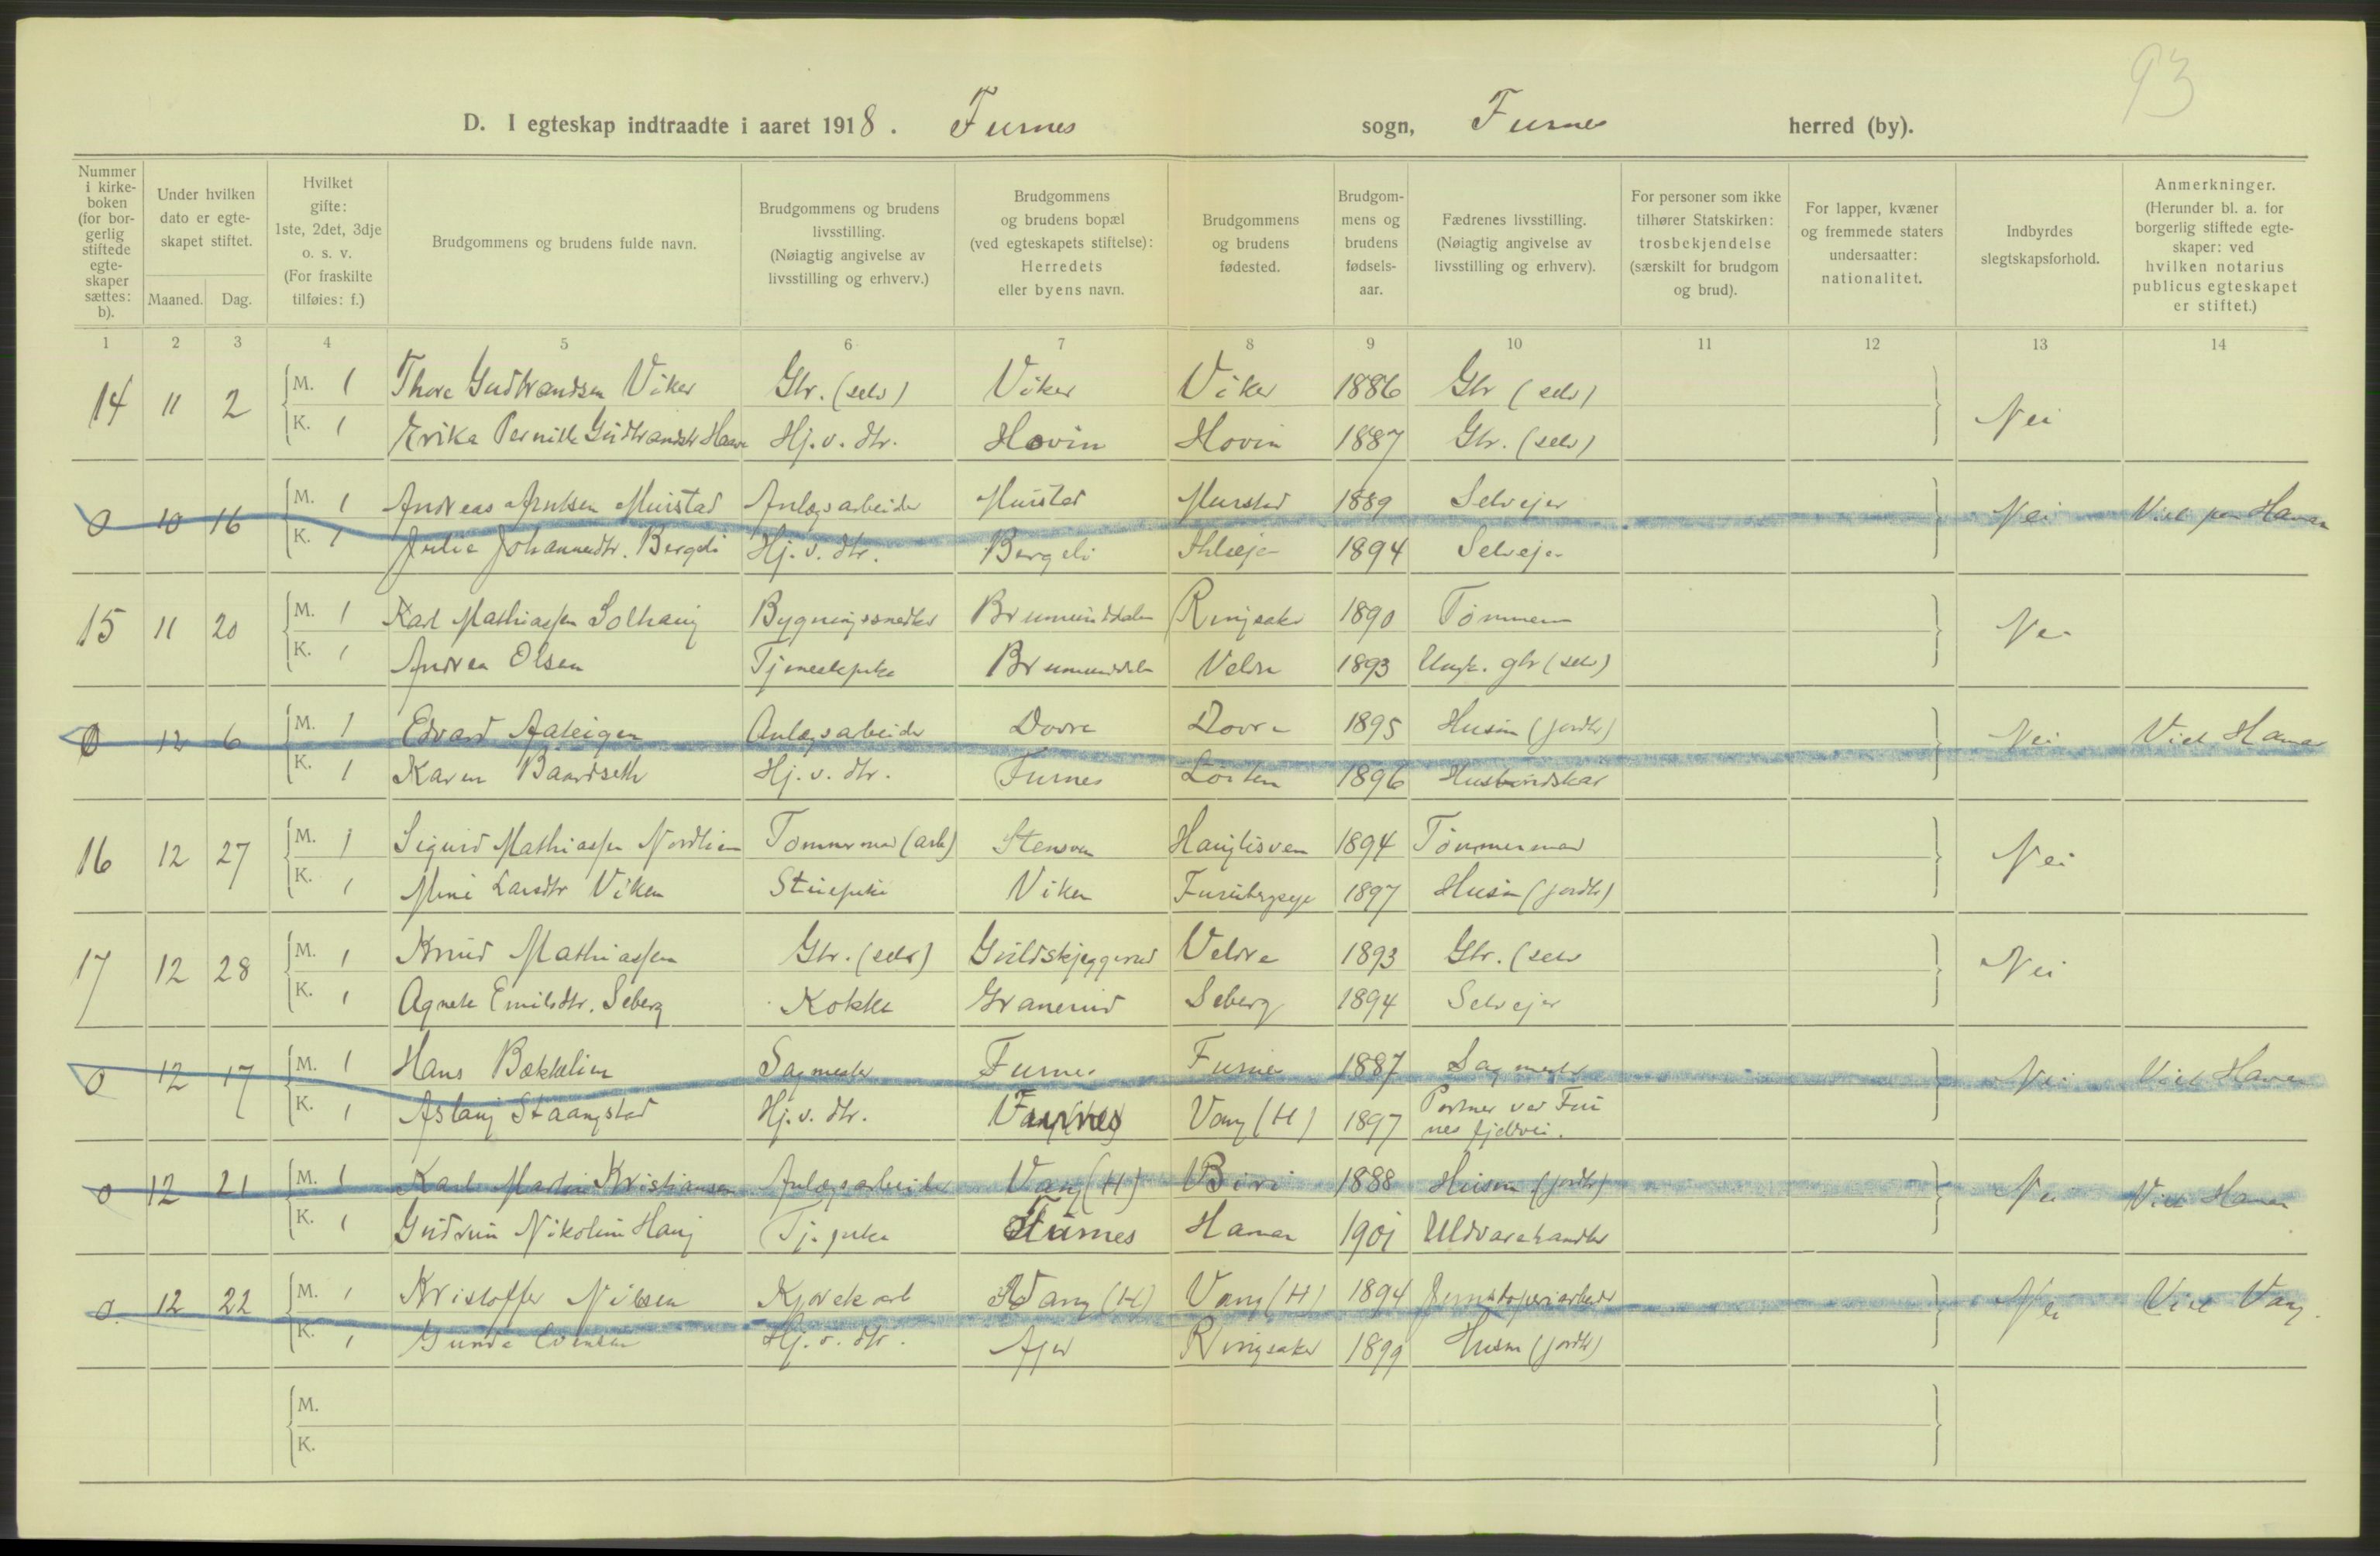 93
D. I egteskap indtraadte i aaret 1918. Furnes sogn, Furnes herred (by).
Nummer i kirke-boken (for bor-gerlig stiftede egte-skaper sættes: b). Under hvilken dato er egte-skapet stiftet. Maaned. Dag. Hvilket gifte: 1ste, 2det, 3dje o. s. v. (For fraskilte tilføies: f.) Brudgommens og brudens fulde navn. Brudgommens og brudens livsstilling. (Nøiagtig angivelse av livsstilling og erhverv.) Brudgommens og brudens bopæl (ved egteskapets stiftelse): Herredets eller byens navn. Brudgommens og brudens fødested. Brudgom-mens og brudens fødsels-aar. Fædrenes livsstilling. (Nøiagtig angivelse av livsstilling og erhverv). For personer som ikke tilhører Statskirken: trosbekjendelse (særskilt for brudgom og brud). For lapper, kvæner og fremmede staters undersaatter: nationalitet. Indbyrdes slegtskapsforhold. Anmerkninger. (Herunder bl. a. for borgerlig stiftede egte-skaper: ved hvilken notarius publicus egteskapet er stiftet.)
1 2 3 4 5 6 7 8 9 10 11 12 13 14
14 11 2 M. 1 Thore Gudbrandsen Viker Gbr. (selv) Viker Viker 1886 Gbr (selv) Nei
K. 1 Erika Pernille Gudbrandsdtr Hj.v. dtr. Hovin Hovin 1887 Gbr. (selv)
0 10 16 M. 1 Andreas Arntsen Murstad Anlægsarbeider Murstad Murstad 1889 Selvejer Nei Viet Hamar
K. 1 Julie Johannesdtr. Bergeli Hj. v. dtr. Bergeli 1894 Selvejer
15 11 20 M. 1 Karl Mathiassen Solhaug Bygningssnedker Brumunddalen Ringsaker 1890 Tømmerm Nei
K. 1 Andrea Olsen Tjenestepike Brumunddalen Veldre 1893 gbr (selv)
0 12 6 M. 1 Edvard Anlægsarbeider Dovre Dovre 1895 Husm (jordbr) Nei Viet Hamar
K. 1 Karen Baardseth Hj. v. dtr. Furnes Løiten 1896
16 12 27 M. 1 Sigurd Mathiassen Nordlien Tømmermand (arb) Stensven Hauglisven 1894 Tømmermand Nei
K. 1 Larsdtr Viken Stuepike Viken Furubergseje 1897 Husm (jordbr)
17 12 28 M. 1 Knud Mathiassen Gbr. (selv) Guldskjeggerud Veldre 1893 Gbr. (selv Nei
K. 1 Agnete Emilsdtr. Seberg Kokke Granerud Seberg 1894 Selvejer
0 12 17 M. 1 Hans Bækkelien Sagmester Furnes Furnes 1887 Sagmester Nei Viet Hamar
K. 1 Aslaug Staangstad Hj. v. dtr. Furnes Vang (H) 1897 Portner ved Fur
nes fjeldvei.
0 12 21 M. 1 Karl Martin Kristiansen Anlægsarbeider Vang (H) Biri 1888 Husm (jordbr) Nei Viet Hamar
K. 1 Gudrun Nikoline Haug Tj. pike Furnes Hamar 1901 Uldvarehandler
0 12 22 M. 1 Kristoffer Nilsen Kjørekarl Vang (H) Vang (H) 1894 Jernstøperiarbeider Nei Viet Vang.
K. 1 Gunda Evensen Hj. v. dtr. Ajer Ringsaker 1899 Husm (jordbr)
M.
K.